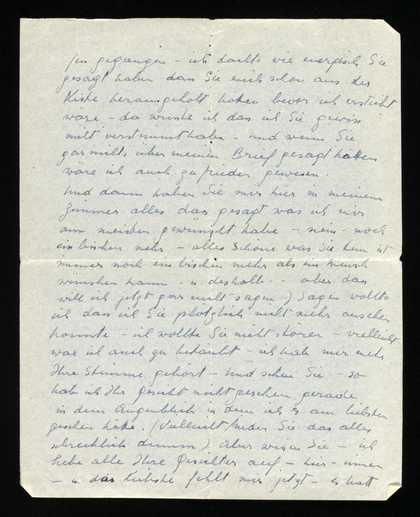 gegangen - ich dachte wie energisch Sie
gesagt haben dass Sie mich schon aus der
Kiste herausgeholt hätten bevor ich erstickt
wäre - da wusste ich dass ich Sie gewiss
nicht verstimmt habe - und wenn Sie
gar nichts über meinen Brief gesagt hätten
wäre ich auch zufrieden gewesen.
Und dann haben Sie mir hier in meinem
Zimmer alles das gesagt was ich mir
am meisten gewünscht habe - nein - noch
ein bischen mehr - alles Schöne was Sie tun ist
immer noch ein bischen mehr als ein Mensch
wünschen kann - u. deshalb - - aber das
will ich jetzt gar nicht sagen) Sagen wollte
ich dass ich Sie plötzlich nicht mehr ansehen
konnte - ich wollte Sie nicht stören - vielleicht
war ich auch zu betäubt - ich hab nur mehr
Ihre Stimme gehört - und sehen Sie - so
hab ich Ihr Gesicht nicht gesehen, gerade
in dem Augenblick in dem ich es am liebsten
gesehen hätte. (Vielleicht finden Sie das alles
schrecklich dumm) Aber wissen Sie - ich
hebe alle Ihre Gesichter auf - hier - innen
- u. das liebste fehlt mir jetzt - es hatt